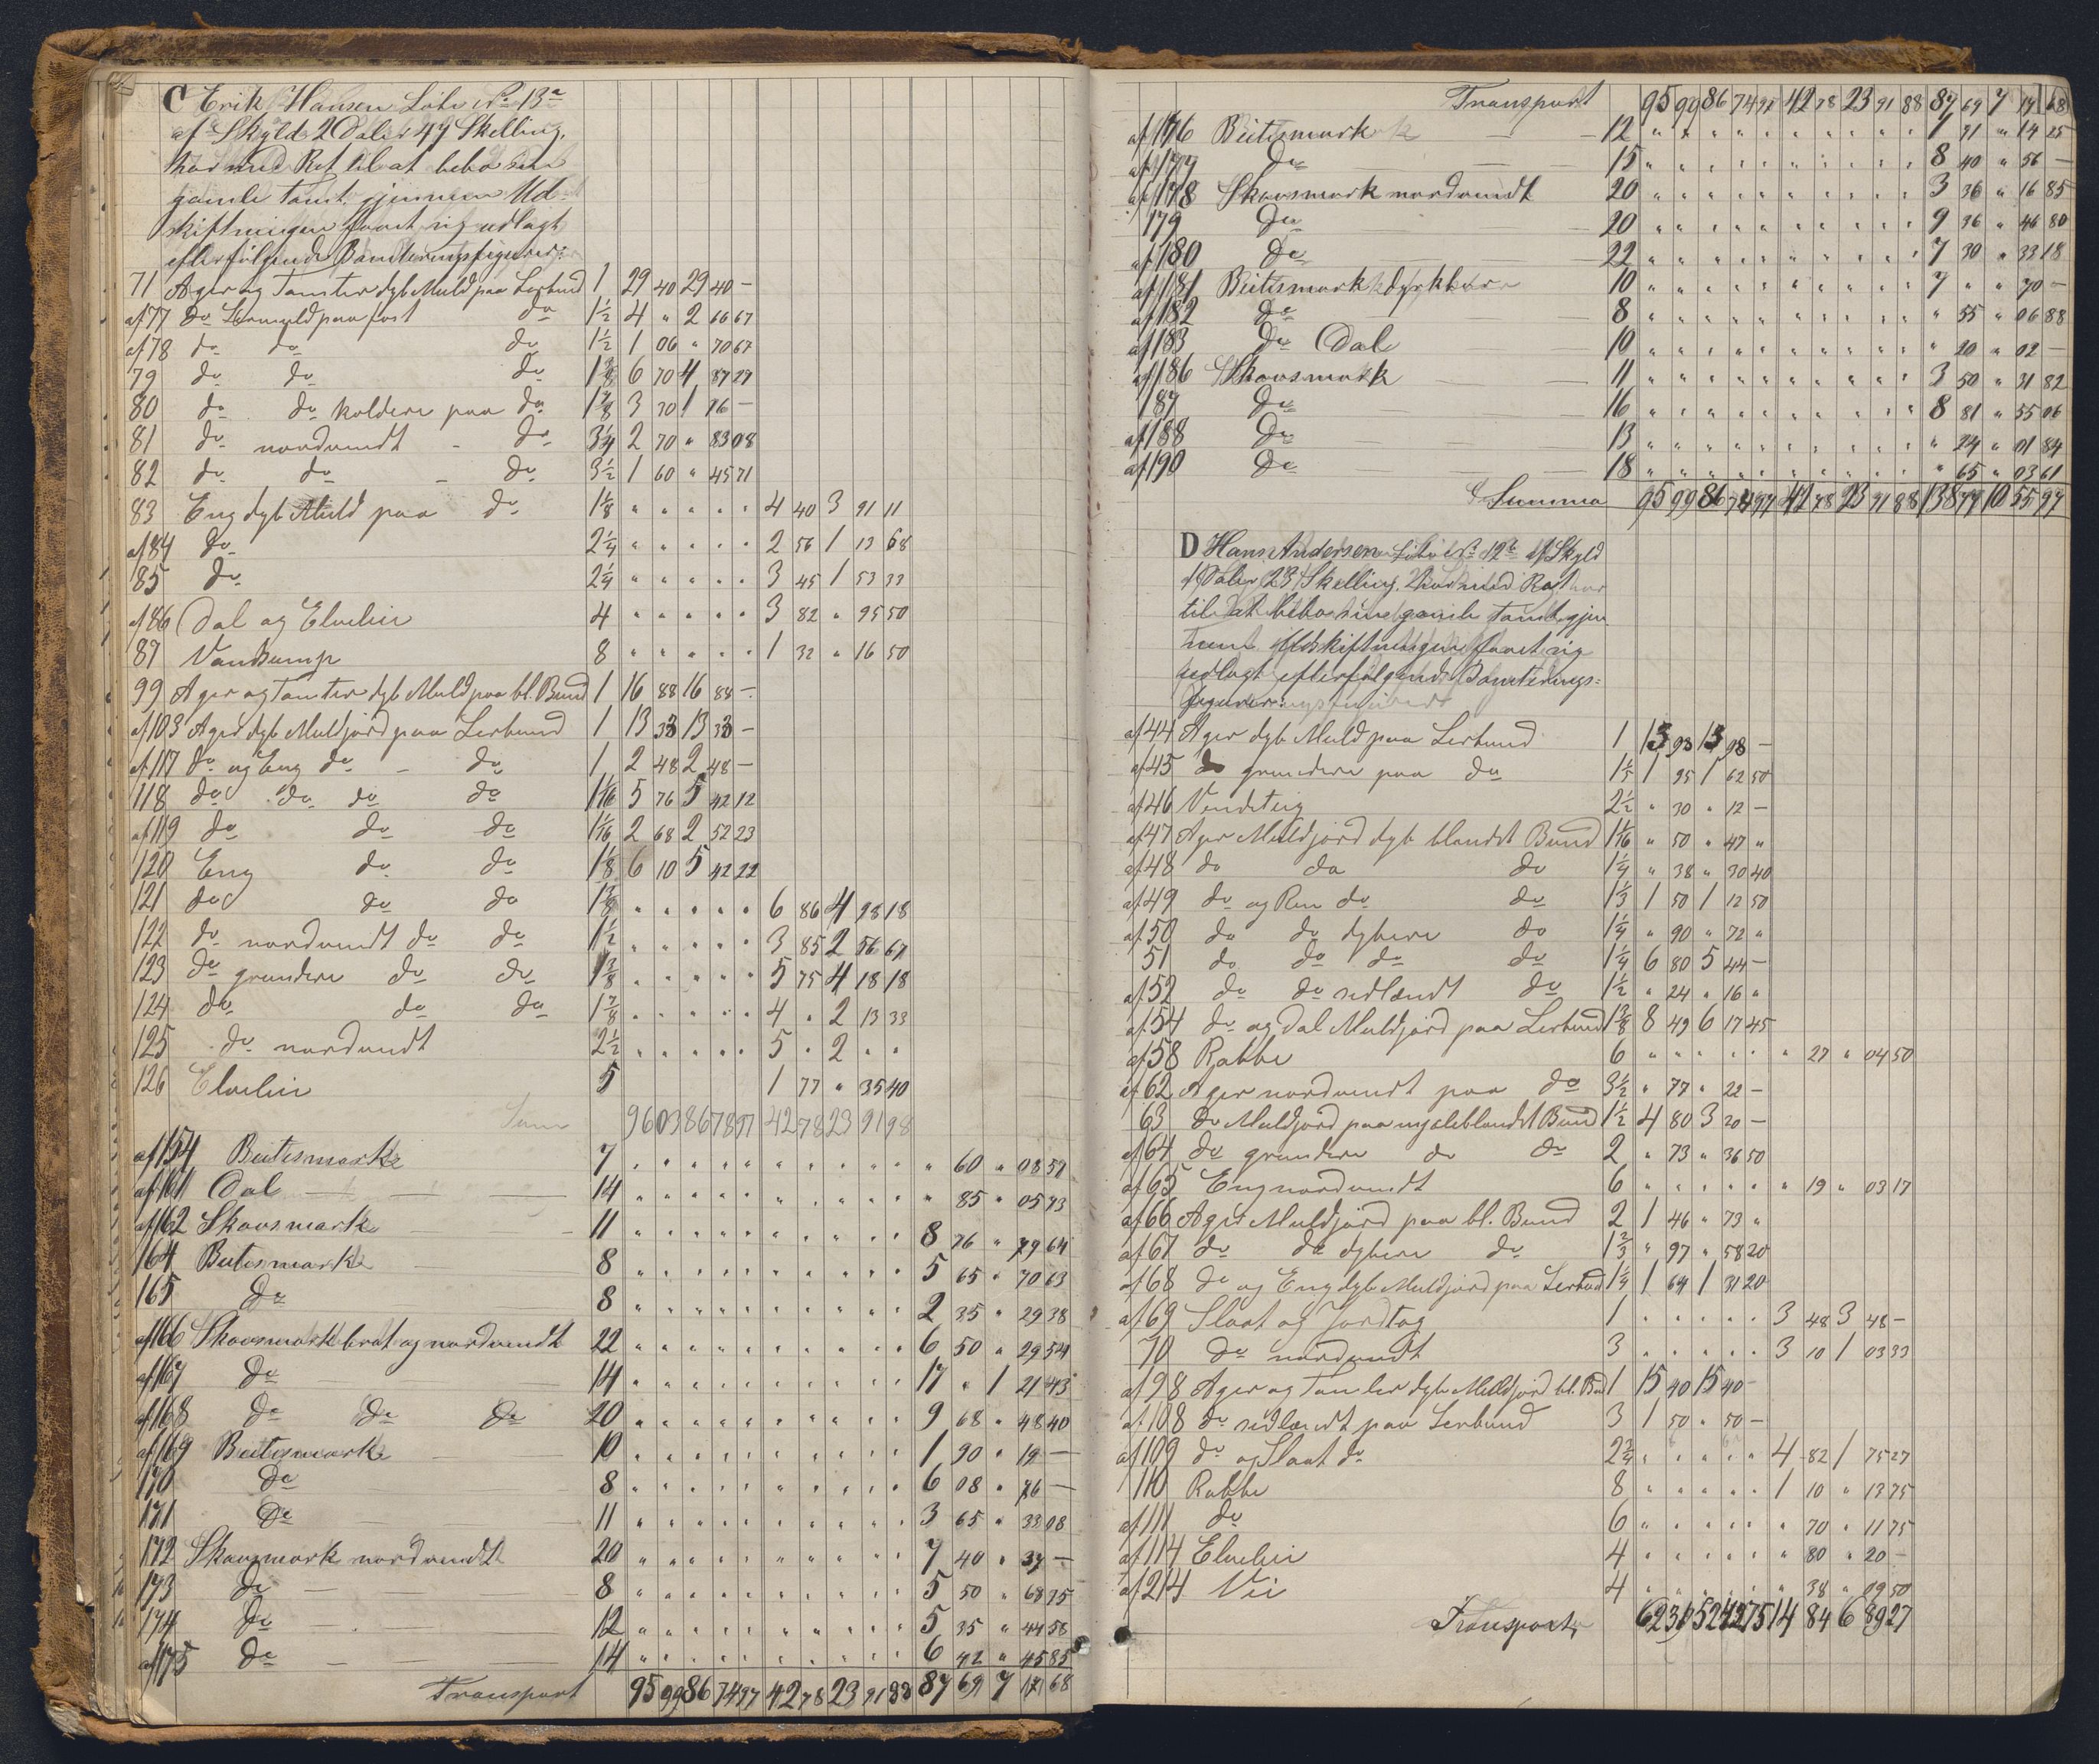 C Erik Hansen Løbe No 13a
af Skyld 2 Daler 47 Skelling,
har med Ret til at bebo sin
gamle Tomt gjennem Ud-
skiftningen faaet sig udlagt
efterfølgende Boniteringsfigurer:
71 Ager og Tomter dyb Muld paa Lerbund 1 29 40 29 40 —
af 77 do Lermuld paa fast do 1½ 4 " 2 66 67
af 78 do do do 1½ 1 06 " 70 67
79 do do do 1⅜ 6 70 4 87 27
80 do do koldere paa do 1⅞ 3 30 1 76 —
81 do nordvendt - do 3¼ 2 70 " 83 08
82 do do - do 3½ 1 60 " 45 71
83 Eng dyb Muld paa do 1⅛ " " " " " 4 40 3 91 11
af 84 do 2¼ " " " " " 2 56 1 13 68
85 do 2¼ " " " " " 3 45 1 53 33
af 86 Dal og Elvelier 4 " " " " " 3 82 " 95 50
87 Vandsump 8 " " " " " 1 32 " 16 50
99 Ager og Tomter dyb Muld paa bl. Bund 1 16 88 16 88 —
af 103 Ager dyb Muldjord paa Lerbund 1 13 33 13 33 —
af 117 do og Eng do - do 1 2 48 2 48 —
118 do do do do 1 1/16 5 76 5 42 12
af 119 do do do 1 1/16 2 68 2 52 23
120 Eng do do 1⅛ 6 10 5 42 22
121 do do do 1⅜ " " " " " 6 86 4 98 18
122 do nordvendt do do 1½ " " " " " 3 85 2 56 67
123 do grundere do do 1⅜ " " " " " 5 75 4 18 18
124 do do do 1⅞ " " " " " 4 " 2 13 33
125 do nordvendt 2½ " " " " " 5 " 2 " "
126 Elvelier 5 1 77 " 35 40
Sum 96 03 86 78 97 42 78 23 91 98
af 154 Beitesmark 7 " " " " " " " " " " " 60 " 08 57
af 161 Dal 14 " " " " " " " " " " " 85 " 05 73
af 162 Skovsmark 11 " " " " " " " " " " 8 76 " 79 64
164 Beitesmark 8 " " " " " " " " " " 5 65 " 70 63
165 do 8 " " " " " " " " " " 2 35 " 29 38
af 166 Skovsmark brat og nordvendt 22 " " " " " " " " " " 6 50 " 29 54
af 167 do 14 " " " " " " " " " " 17 " 1 21 43
af 168 do do do 20 " " " " " " " " " " 9 68 " 48 40
af 169 Beitesmark 10 " " " " " " " " " " 1 90 " 19 —
170 do 8 " " " " " " " " " " 6 08 " 76 —
171 do 11 " " " " " " " " " " 3 65 " 33 08
172 Skovsmark nordvendt 20 " " " " " " " " " " 7 40 " 37 —
173 do 8 " " " " " " " " " " 5 50 " 68 75
174 do 12 " " " " " " " " " " 5 35 " 44 58
af 175 do 14 " " " " " " " " " " 6 42 " 45 85
Transport 95 99 86 74 97 42 78 23 91 88 87 69 7 17 68
Transport 95 99 86 74 97 42 78 23 91 88 87 69 7 17 68
af 176 Beitesmark 12 " " " " " " " " " " 1 71 " 14 25
af 177 do 15 " " " " " " " " " " 8 40 " 56 —
af 178 Skovsmark nordvendt 20 " " " " " " " " " " 3 36 " 16 85
179 do 20 " " " " " " " " " " 9 36 " 46 80
af 180 do 22 " " " " " " " " " " 7 30 " 33 18
af 181 Beitesmark dyrkbar 10 " " " " " " " " " " 7 " " 70 —
af 182 do 8 " " " " " " " " " " " 55 " 06 88
af 183 do Dal 10 " " " " " " " " " " " 20 " 02 —
af 186 Skovsmark 11 " " " " " " " " " " 3 50 " 31 82
187 do 16 " " " " " " " " " " 8 81 " 55 06
af 188 do 13 " " " " " " " " " " " 24 " 01 84
af 190 do 18 " " " " " " " " " " " 65 " 03 61
Summa 95 99 86 74 97 42 78 23 91 88 138 77 10 55 97
D Hans Andersen Løbe No 12b af Skyld
1 Daler 23 Skelling. har med Ret
til at bebo sin gamle Tomt gjen
nem Udskiftningen faaet sig
udlagt efterfølgende Boniterings=
figurer:
af 44 Ager dyb Muld paa Lerbund 1 13 98 13 98 —
af 45 do grundere paa do 1⅕ 1 95 1 62 50
af 46 Vendeteig 2½ " 30 " 12 —
af 47 Ager Muldjord dyb blandet Bund 1 1/16 " 50 " 47 "
af 48 do do do 1¼ " 38 " 30 40
af 49 do og Ren do do 1⅓ 1 50 1 12 50
af 50 do do dybere do 1¼ " 90 " 72 "
51 do do do do 1¼ 6 80 5 44 —
af 52 do do sidlændt do 1½ " 24 " 16 "
af 54 do og Dal Muldjord paa Lerbund 1⅜ 8 49 6 17 45
af 58 Rabbe 6 " " " " " " 27 " 04 50
af 62 Ager nordvendt paa do 3½ " 77 " 22 —
63 do Muldjord paa mæleblandet Bund 1½ 4 80 3 20 —
af 64 do grundere do do 2 " 73 " 36 50
af 65 Eng nordvendt 6 " " " " " " 19 " 03 17
af 66 Ager Muldjord paa bl. Bund 2 1 46 " 73 "
af 67 do do dybere do 1⅔ " 97 " 58 20
af 68 do og Eng dyb Muldjord paa Lerbund 1¼ 1 64 1 31 20
af 69 Slaat og Jordtag 1 " " " " " 3 48 3 48 —
70 do nordvendt 3 " " " " " 3 10 1 03 33
af 98 Ager og Tomter dyb Muldjord bl. Bund 1 15 40 15 40 —
af 108 do sidlændt paa Lerbund 3 1 50 " 50 —
af 109 do og Slaat do 2¾ " " " " " 4 82 1 75 27
110 Rabbe 8 " " " " " 1 10 " 13 75
af 111 do 6 " " " " " " 70 " 11 75
af 114 Elvelier 4 " " " " " " 80 " 20 —
af 214 Vei 4 " " " " " " 38 " 09 50
Transport 62 31 52 42 75 14 84 6 89 27